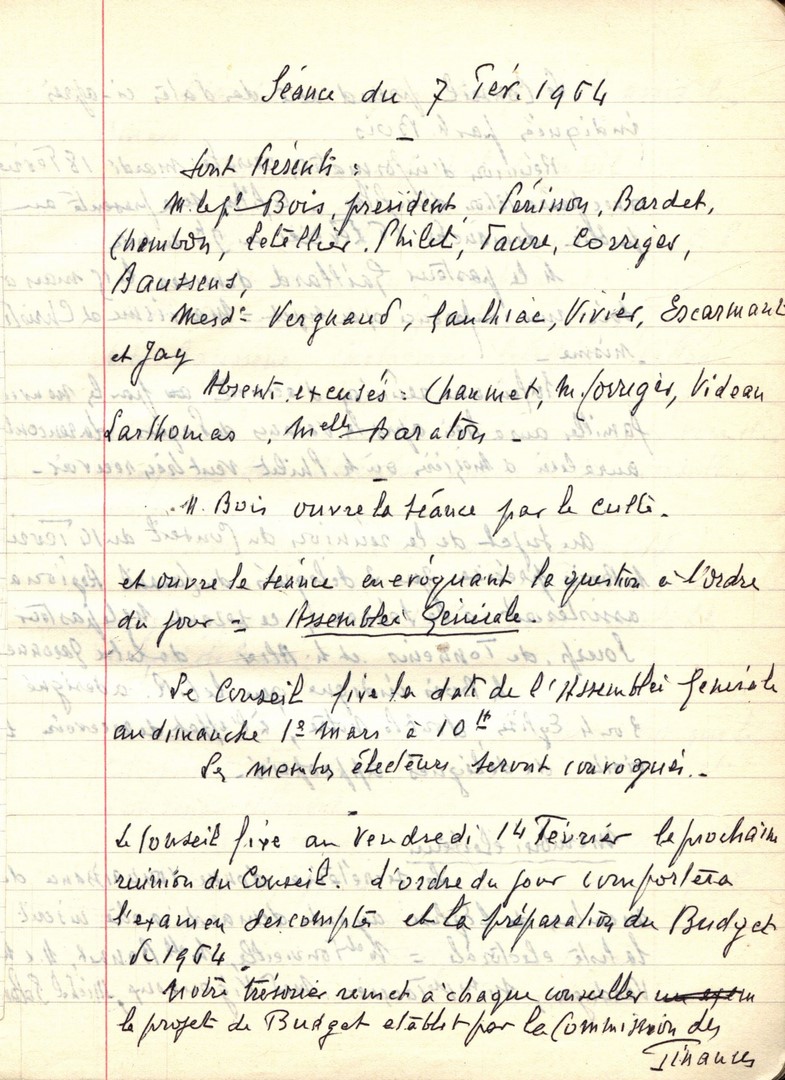 Séance du 7 Fév. 1964
Sont Présents :
M. le pr Bois, président, Pénisson, Bardet,
Chambon, Letellier, Philit, Faure, Corriges,
Baussens,
Mesd. Vergnaud, Gaulhiac, Vivier, Escarmant
et Jay
Absents excusés : Chaumet, M. Corriges, Videau
Larthomas, Melle Baraton -
M. Bois ouvre la séance par le culte.
et ouvre le séance en évoquant la question à l'ordre
du jour = Assemblée Générale.
Le Conseil fixe la date de l'Assemblée Générale
au dimanche 1er Mars à 10 H
Les membres électeurs seront convoqués. -
Le Conseil fixe au Vendredi 14 Février la prochaine
réunion du Conseil. L'ordre du jour comportera
l'examen des comptes et la préparation du Budget
de 1964
Notre trésorier remet à chaque conseiller
le projet de Budget établit par la Commission des
Finances